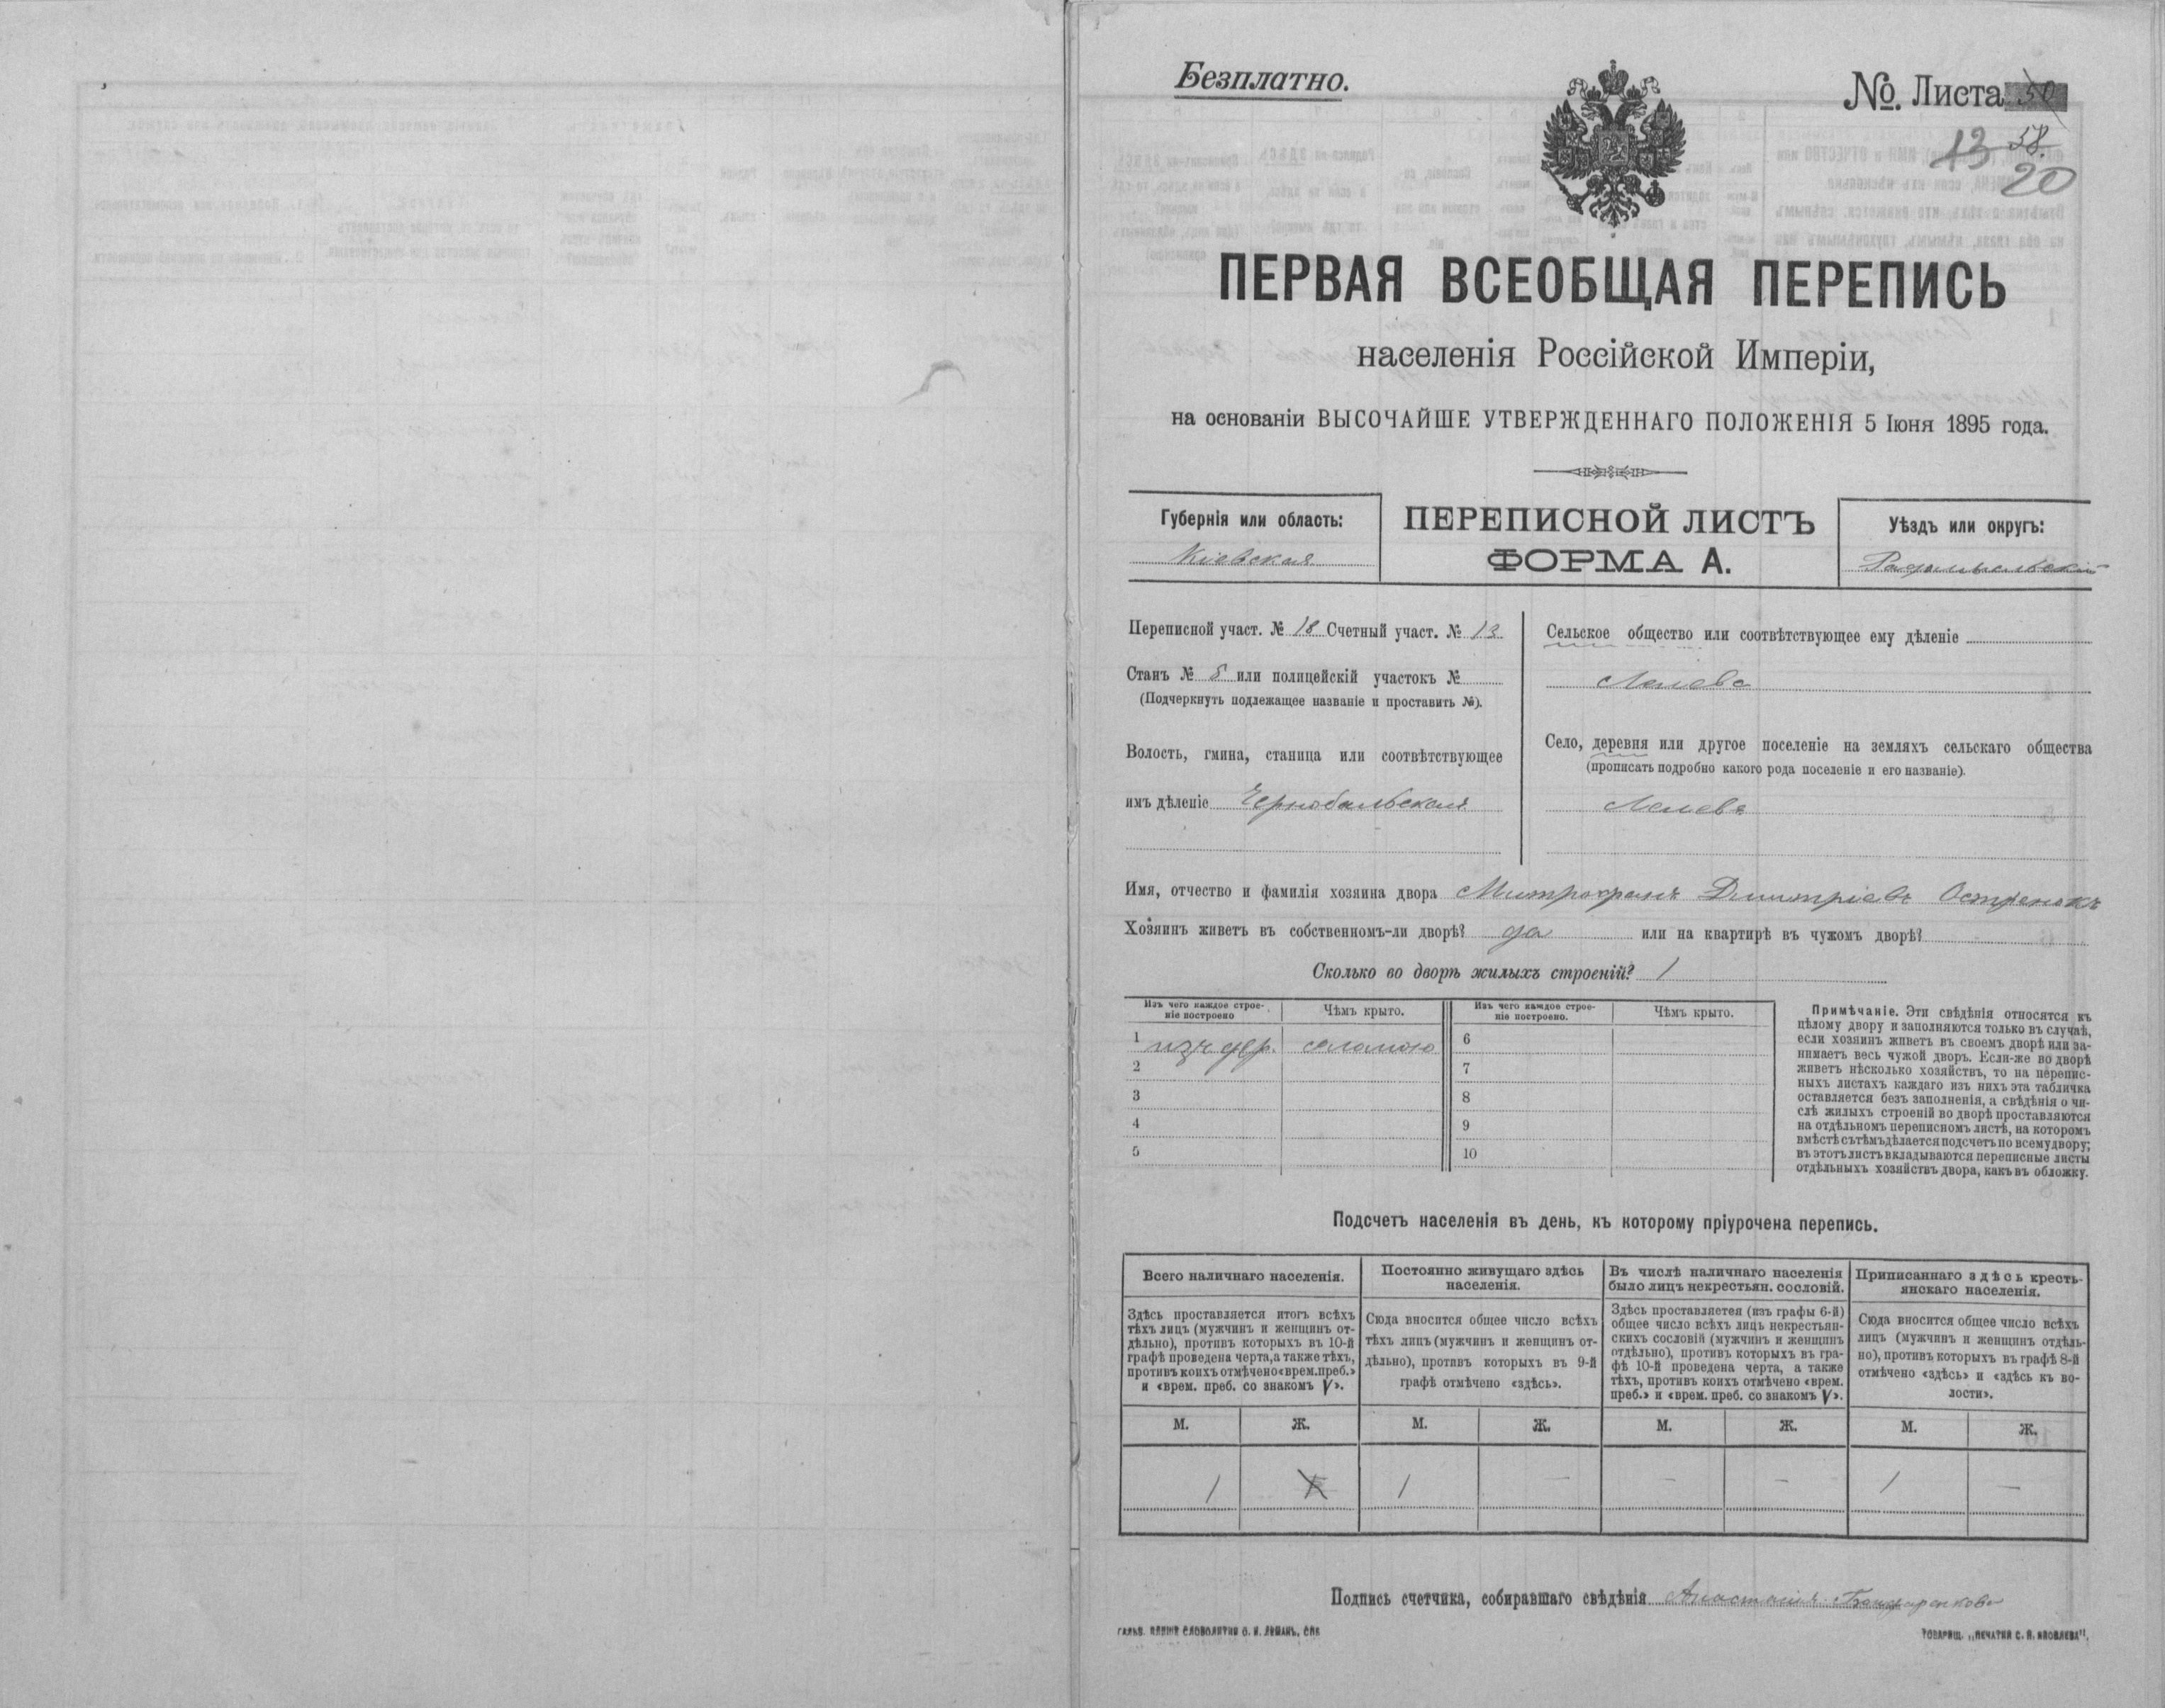 Безплатно.
№. Листа 50
58.
13
20
ПЕРВАЯ ВСЕОБЩАЯ ПЕРЕПИСЬ
населенія Россійской Имперіи,
на основаніи ВЫСОЧАЙШЕ УТВЕРЖДЕННАГО ПОЛОЖЕНІЯ 5 Іюня 1895 года.
Губернія или область:
Кіевская
ПЕРЕПИСНОЙ ЛИСТЪ
ФОРМА А.
Уѣздъ или округъ:
Радомысльскій
Переписной участ. № 18 Счетный участ. № 13
Станъ № 5 или полицейскій участокъ №
(Подчеркнуть подлежащее названіе и проставить №).
Волость, гмина, станица или соотвѣтствующее
имъ дѣленіе Чернобыльская
Сельское общество или соотвѣтствующее ему дѣленіе
Лелевъ
Село, деревня или другое поселеніе на земляхъ сельскаго общества
(прописать подробно какого рода поселеніе и его названіе).
Лелевъ
Имя, отчество и фамилія хозяина двора Митрофанъ Димитріевъ
Хозяинъ живетъ въ собственномъ-ли дворѣ? да или на квартирѣ въ чужомъ дворѣ?
Сколько во дворѣ жилыхъ строеній? 1
Изъ чего каждое строе-
ніе построено
Чѣмъ крыто.
Изъ чего каждое строе-
ніе построено.
Чѣмъ крыто.
1 изъ дер. соломою
2
3
4
5
6
7
8
9
10
Примѣчаніе. Эти свѣдѣнія относятся къ
цѣлому двору и заполняются только въ случаѣ,
если хозяинъ живетъ въ своемъ дворѣ или за-
нимаетъ весь чужой дворъ. Если-же во дворѣ
живетъ нѣсколько хозяйствъ, то на перепис-
ныхъ листахъ каждаго изъ нихъ эта табличка
оставляется безъ заполненія, а свѣдѣнія о чи-
слѣ жилыхъ строеній во дворѣ проставляются
на отдѣльномъ переписномъ листѣ, на которомъ
вмѣстѣ съ тѣмъ дѣлается подсчетъ по всему двору;
въ этотъ листъ вкладываются переписные листы
отдѣльныхъ хозяйствъ двора, какъ въ обложку.
Подсчетъ населенія въ день, къ которому пріурочена перепись.
Всего наличнаго населенія.
Здѣсь проставляется итогъ всѣхъ
тѣхъ лицъ (мужчинъ и женщинъ от-
дѣльно), противъ которыхъ въ 10-й
графѣ проведена черта, а также тѣхъ,
противъ коихъ отмѣчено «врем. преб.»
и «врем. преб. со знакомъ V».
Постоянно живущаго здѣсь
населенія.
Сюда вносится общее число всѣхъ
тѣхъ лицъ (мужчинъ и женщинъ от-
дѣльно), противъ которыхъ въ 9-й
графѣ отмѣчено «здѣсь».
Въ числѣ наличнаго населенія
было лицъ некрестьян. сословій.
Здѣсь проставляется (изъ графы 6-й)
общее число всѣхъ лицъ некрестьян-
скихъ сословій (мужчинъ и женщинъ
отдѣльно), противъ которыхъ въ гра-
фѣ 10-й проведена черта, а также
тѣхъ, противъ коихъ отмѣчено «врем.
преб.» и «врем. преб. со знакомъ V».
Приписаннаго здѣсь кресть-
янскаго населенія.
Сюда вносится общее число всѣхъ
лицъ (мужчинъ и женщинъ отдѣль-
но), противъ которыхъ въ графѣ 8-й
отмѣчено «здѣсь» и «здѣсь къ во-
лости».
М. Ж. М. Ж. М. Ж. М. Ж.
1 1 — — — 1 —
Подпись счетчика, собиравшаго свѣдѣнія Анастасія Бондаренкова
ГАЛЬВ. КЛИШЕ СЛОВОЛИТНИ О. И. ЛЕМАНЪ, СПБ
ТОВАРИЩ. „ПЕЧАТНЯ С. П. ЯКОВЛЕВА".